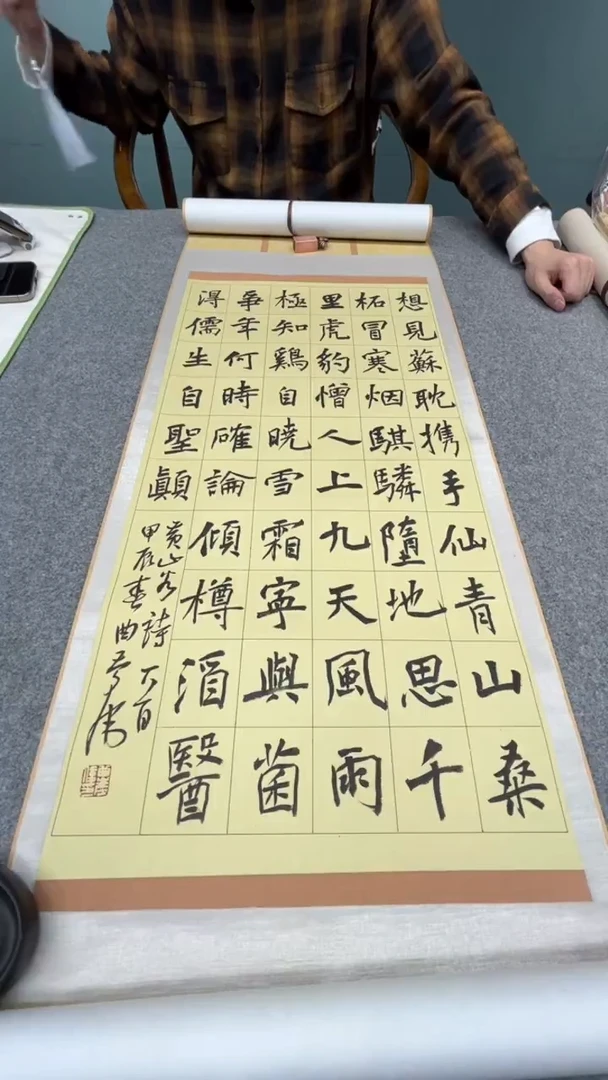 想見蘇耽携手仙青山桑
柘冒寒烟騏驎墮地思千
里虎豹憎人上九天風雨
極知鷄自曉雪霜寧與菌
爭年何時確論傾樽酒醫
淂儒生自聖顛
黄山谷詩一首
甲辰春曲